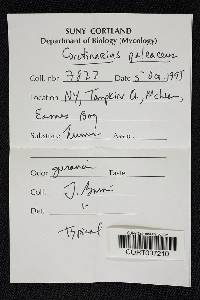 SUNY CORTLAND
Department of Biology (Mycology)
Cortinarius paleaceus
Coll. nbr 7827 Date 5 Oct 1995
Location NY, Tompkins Co, McLean,
Eames Bog
Substrate humus Assoc.
Odor geranium Taste
Coll. J.
Det. "
typical